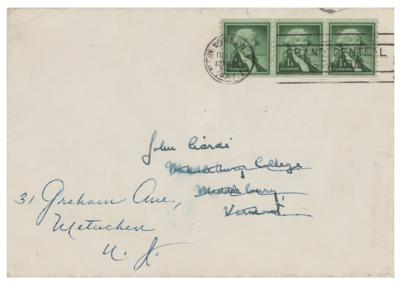 GRAND CENTRAL
John Ciardi
Middlebury College
Middlebury,
Vermont
31 Graham Ave,
Metuchen
N. J.